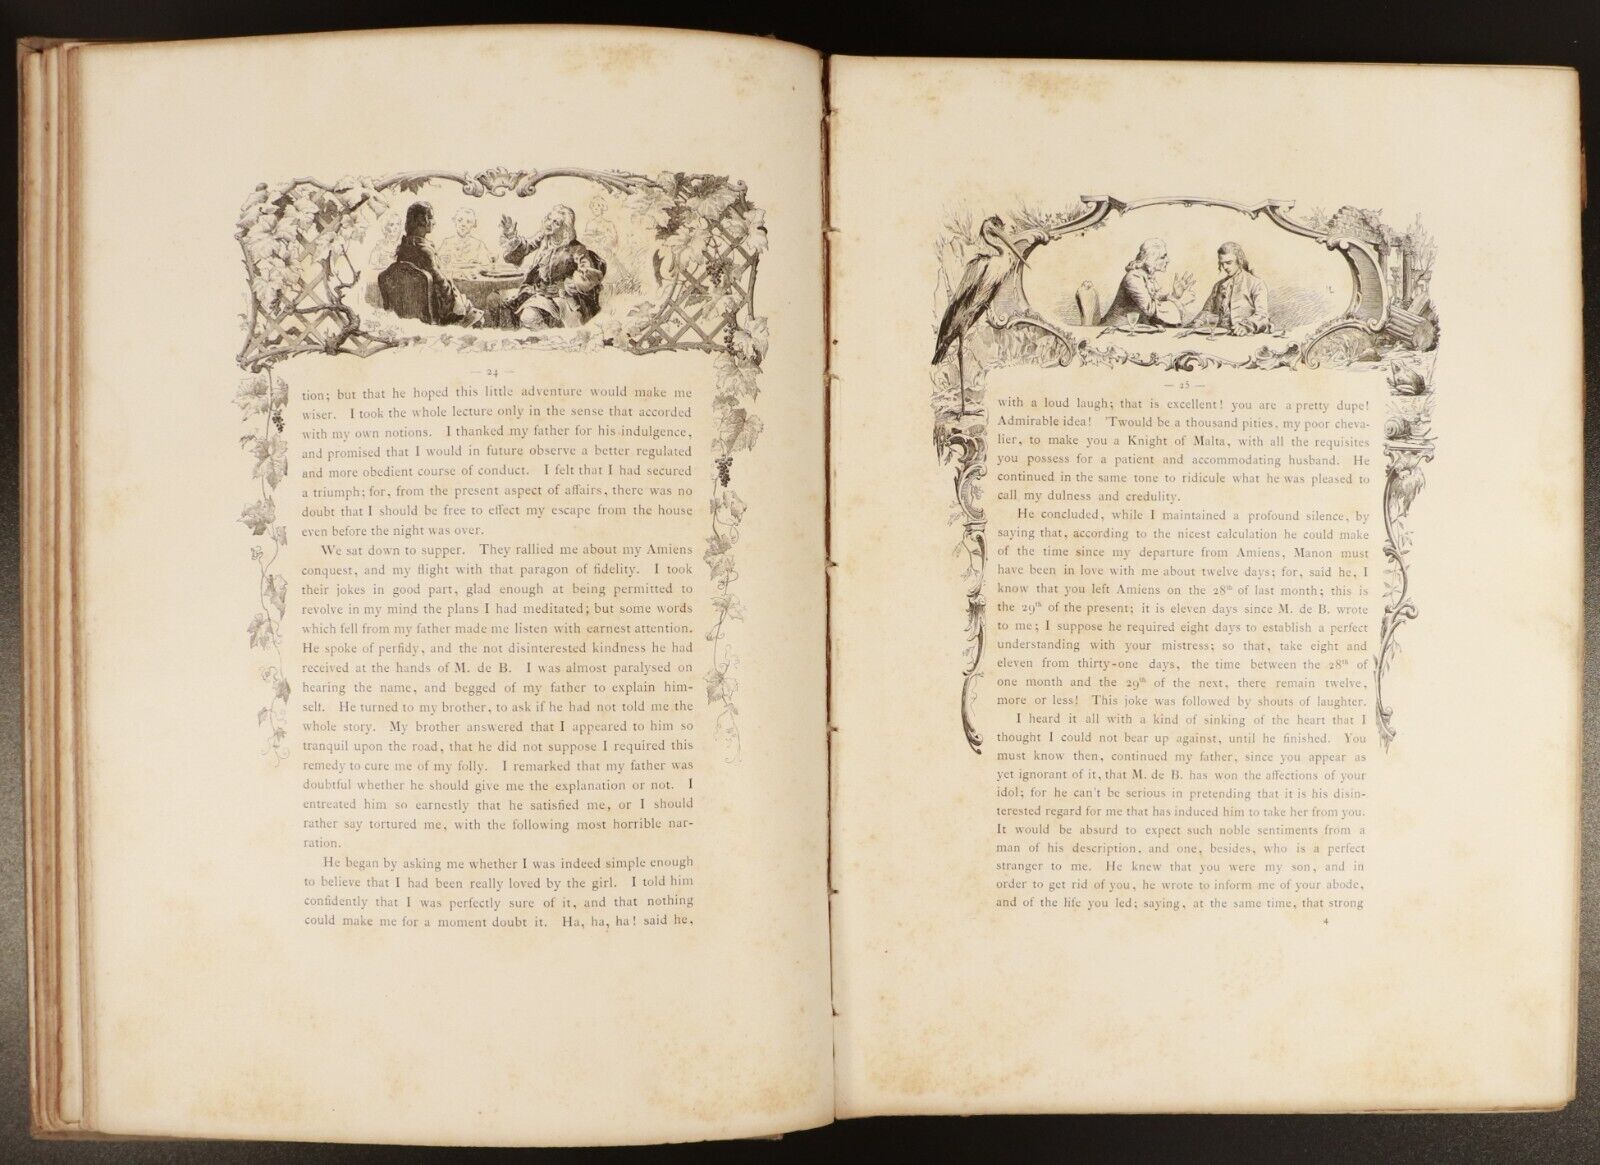 — 24 —
tion; but that he hoped this little adventure would make me
wiser. I took the whole lecture only in the sense that accorded
with my own notions. I thanked my father for his indulgence,
and promised that I would in future observe a better regulated
and more obedient course of conduct. I felt that I had secured
a triumph; for, from the present aspect of affairs, there was no
doubt that I should be free to effect my escape from the house
even before the night was over.
We sat down to supper. They rallied me about my Amiens
conquest, and my flight with that paragon of fidelity. I took
their jokes in good part, glad enough at being permitted to
revolve in my mind the plans I had meditated; but some words
which fell from my father made me listen with earnest attention.
He spoke of perfidy, and the not disinterested kindness he had
received at the hands of M. de B. I was almost paralysed on
hearing the name, and begged of my father to explain him-
self. He turned to my brother, to ask if he had not told me the
whole story. My brother answered that I appeared to him so
tranquil upon the road, that he did not suppose I required this
remedy to cure me of my folly. I remarked that my father was
doubtful whether he should give me the explanation or not. I
entreated him so earnestly that he satisfied me, or I should
rather say tortured me, with the following most horrible nar-
ration.
He began by asking me whether I was indeed simple enough
to believe that I had been really loved by the girl. I told him
confidently that I was perfectly sure of it, and that nothing
could make me for a moment doubt it. Ha, ha, ha! said he,
— 25 —
with a loud laugh; that is excellent! you are a pretty dupe!
Admirable idea! 'Twould be a thousand pities, my poor cheva-
lier, to make you a Knight of Malta, with all the requisites
you possess for a patient and accommodating husband. He
continued in the same tone to ridicule what he was pleased to
call my dulness and credulity.
He concluded, while I maintained a profound silence, by
saying that, according to the nicest calculation he could make
of the time since my departure from Amiens, Manon must
have been in love with me about twelve days; for, said he, I
know that you left Amiens on the 28th of last month; this is
the 29th of the present; it is eleven days since M. de B. wrote
to me; I suppose he required eight days to establish a perfect
understanding with your mistress; so that, take eight and
eleven from thirty-one days, the time between the 28th of
one month and the 29th of the next, there remain twelve,
more or less! This joke was followed by shouts of laughter.
I heard it all with a kind of sinking of the heart that I
thought I could not bear up against, until he finished. You
must know then, continued my father, since you appear as
yet ignorant of it, that M. de B. has won the affections of your
idol; for he can't be serious in pretending that it is his disin-
terested regard for me that has induced him to take her from you.
It would be absurd to expect such noble sentiments from a
man of his description, and one, besides, who is a perfect
stranger to me. He knew that you were my son, and in
order to get rid of you, he wrote to inform me of your abode,
and of the life you led; saying, at the same time, that strong
4